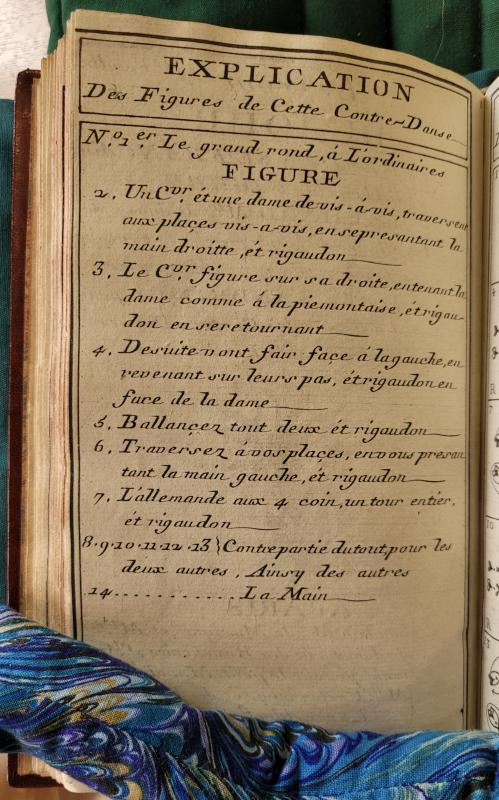 EXPLICATION
Des Figures de Cette Contre-Danse
N.o 1.er Le grand rond, á L'ordinaires
FIGURE
2, Un Cvr. ét une dame de vis-á-vis, traversent
aux plaçes vis-a-vis, en se presantant la
main droitte, ét rigaudon
3, Le Cvr. figure sur sa droite, en tenant la
dame comme á la piemontaise, ét rigau-
don en se retournant
4, De suite vont fair façe á la gauche, en
revenant sur leurs pas, ét rigaudon en
face de la dame
5, Ballançez tout deux ét rigaudon
6, Traversez á vos plaçes, en vous presan
tant la main gauche, ét rigaudon
7, L'allemande aux 4 coin, un tour entier,
ét rigaudon
8.9.10.11.12.13 } Contrepartie du tout, pour les
deux autres, Ainsy des autres
14........... La Main